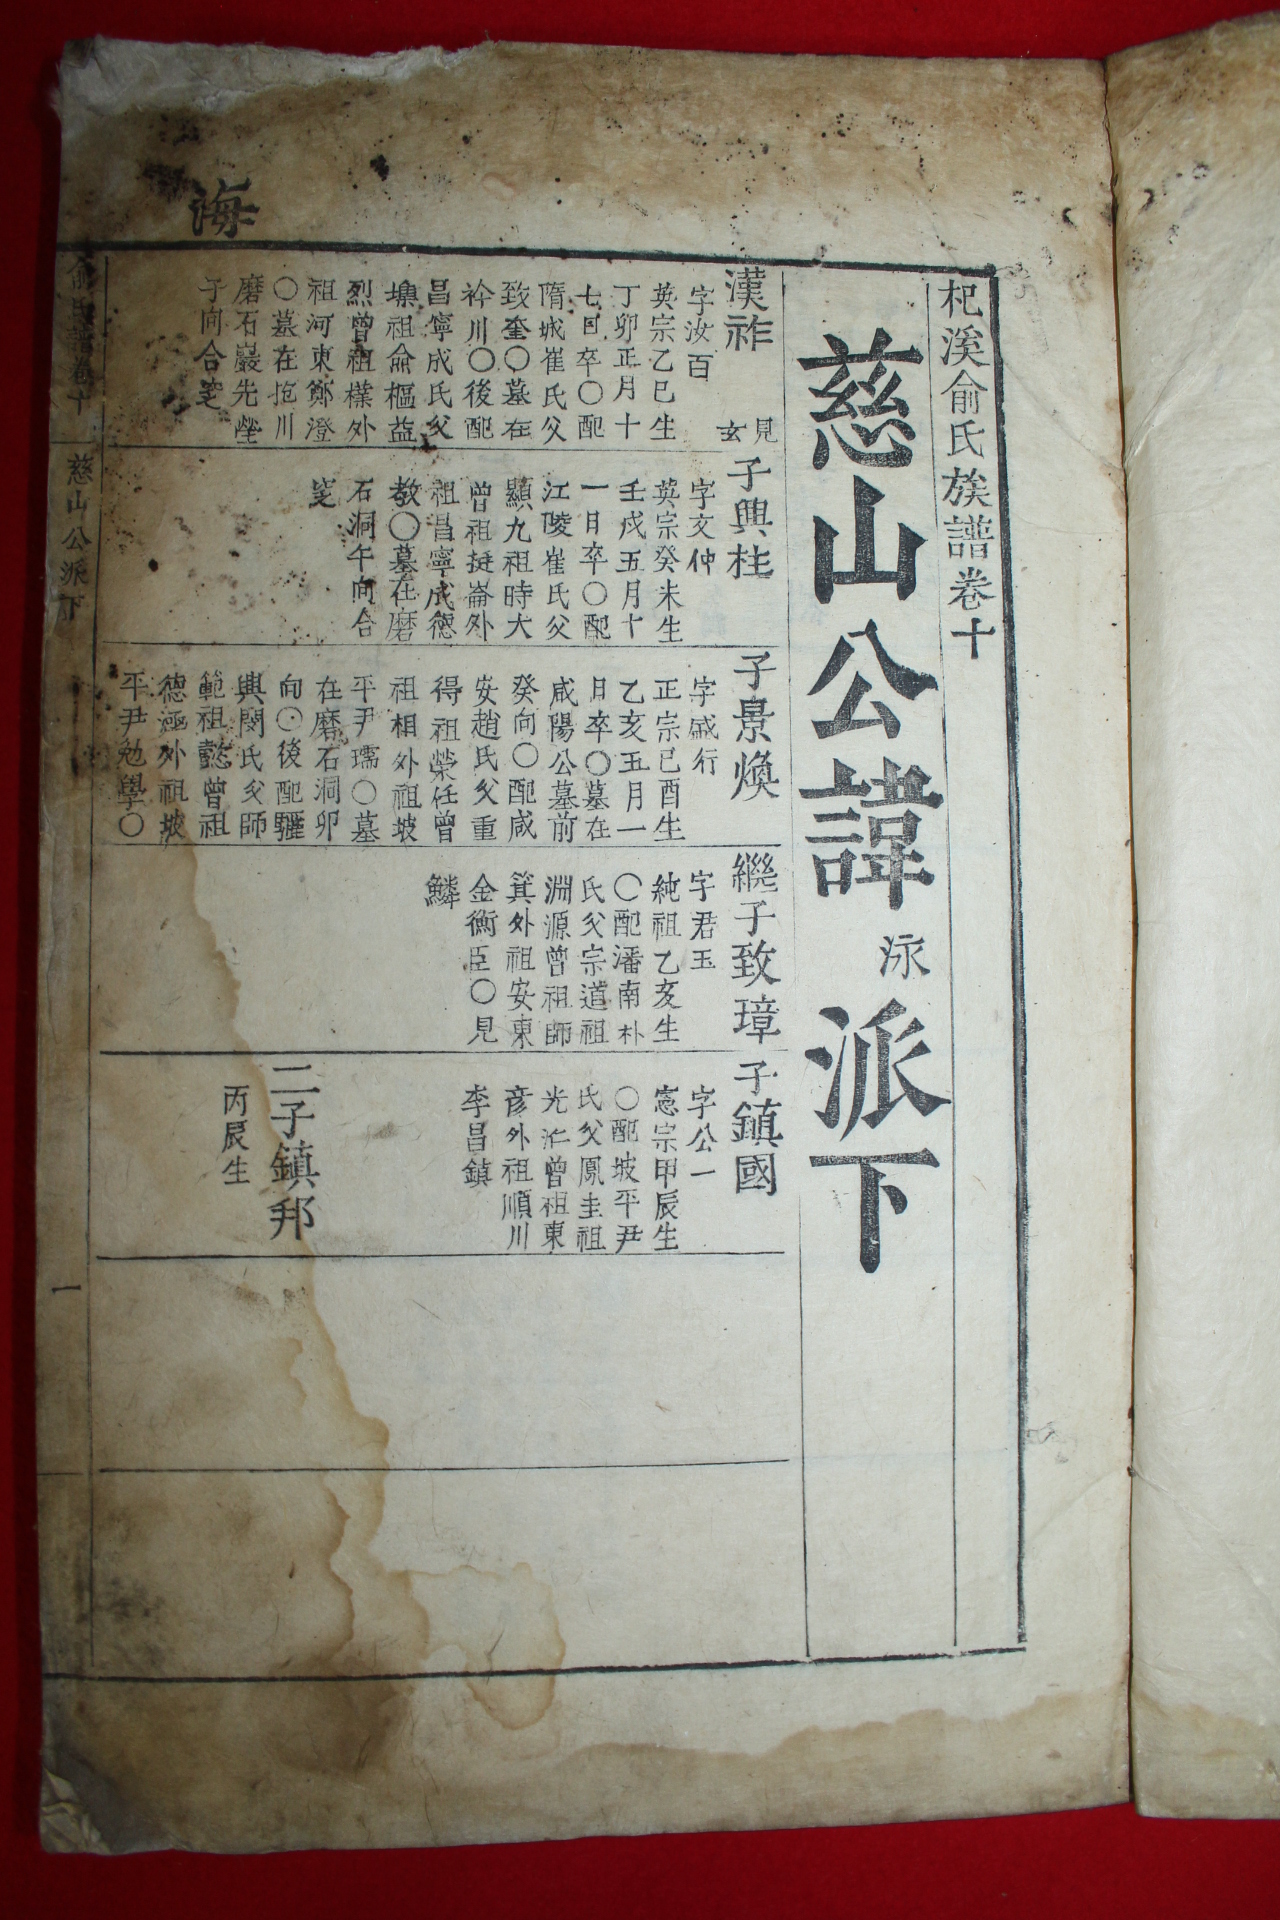 海
杞溪俞氏族譜卷十
慈山公諱泳派下
漢祚
見
玄
字汝百
英宗乙巳生
丁卯正月十
七日卒〇配
隋城崔氏父
致奎〇墓在
衿川〇後配
昌寧成氏父
壎祖俞樞益
烈曾祖檏外
祖河東鄭澄
〇墓在抱川
磨石巖先塋
子向合窆
子興柱
字文仲
英宗癸未生
壬戍五月十
一日卒〇配
江陵崔氏父
顯九祖時大
曾祖挺崙外
祖昌寧成德
教〇墓在磨
石洞午向合
窆
子景煥
字盛行
正宗己酉生
乙亥五月一
日卒〇墓在
咸陽公墓前
癸向〇配咸
安趙氏父重
得祖榮任曾
祖相外祖坡
平尹瓀〇墓
在磨石洞卯
向〇後配驪
興閔氏父師
範祖懿曾祖
德涵外祖坡
平尹勉學〇
繼子致璋
字君玉
純祖乙亥生
〇配潘南朴
氏父宗道祖
淵源曾祖師
箕外祖安東
金衡臣〇見
鱗
子鎮國
字公一
憲宗甲辰生
〇配坡平尹
氏父鳳圭祖
光仁曾祖東
彥外祖順川
李昌鎮
二子鎮邦
丙辰生
俞氏譜卷十
慈山公派下
一